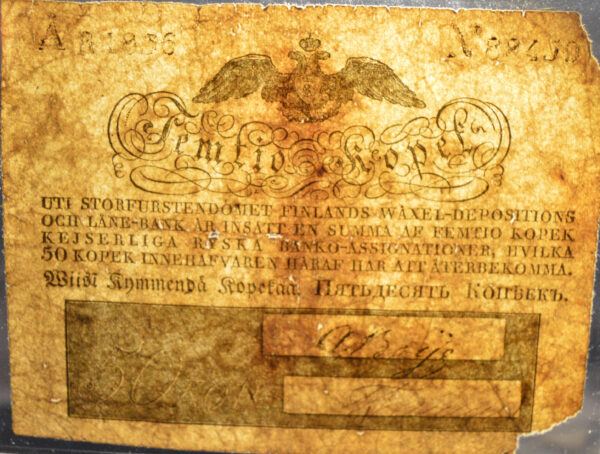 År 1836
Femtio Kopek.
UTI STORFURSTENDÖMET FINLANDS WÄXEL-DEPOSITIONS
OCH LÅNE-BANK ÄR INSATT EN SUMMA AF FEMTIO KOPEK
KEJSERLIGA RYSKA BANKO-ASSIGNATIONER, HVILKA
50 KOPEK INNEHAFVAREN HÄRAF HAR ATT ÅTERBEKOMMA.
Wiisi Kymmendä Kopekaa. ПЯТЬДЕСЯТЬ КОПѢЕКЪ.